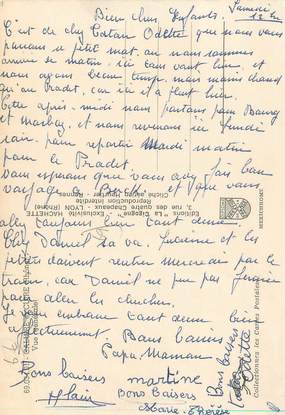 Samedi
12 h
Bien chers Enfants.
C'est de chez Tatan Odette que nous vous
parvient ce petit mot. car nous sommes
arrivé ce matin. ici tout vont bien. et
nous avons beau temp. mais moins chaud
qu'au Pradet, car ici il a plut hier.
Cette après-midi nous partons pour Bourg
et Marboz, et nous revenons ici lundi
soir. pour repartir Mardi matin
pour le Pradet.
Nous esperons que vous avez fais bon
voyage et que vous
allez toujours bien tout deux
Chez Daniel sa va. Lucienne et les
petits doivent rentrer mercredi par le
train, car Daniel ne peu pas
aller les chercher.
Je vous embrasse tout deux bien
affectueusement. Bons baisers
Papa. Maman
Bons baisers martine
Alain Bons Baisers
Marie-Thérèse
Bons baisers
Tatan Odette
Editions "La Cigogne" Exclusivité HACHETTE
3, rue des quatre Chapeaux LYON (Rhône)
Reproduction Interdite
MEXICHROME
Collectionnez les Cartes Postales